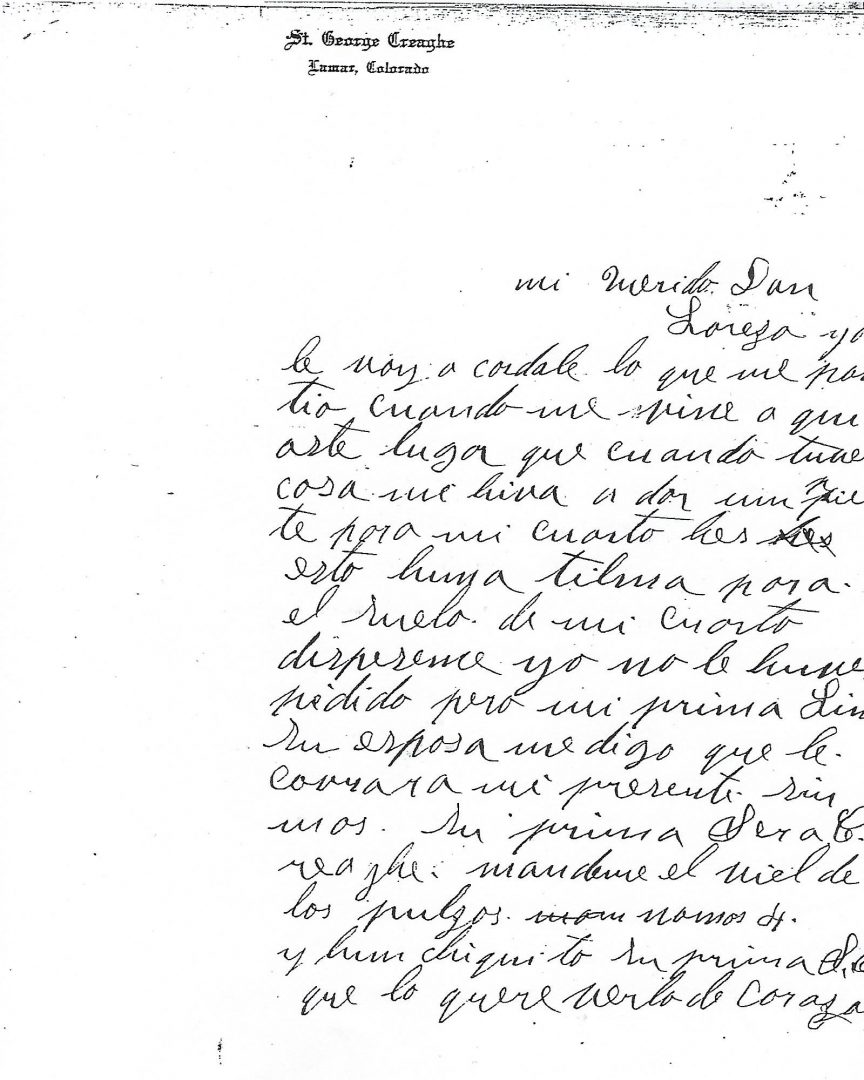 St. George Creaghe
Lamar, Colorado
mi querido Don
Loreza yo
le voy a cordale lo que me par
tio cuando me vine a qui
aste luga que cuando tuve
cosa me hiva a dar un
te para mi cuarto hes
esto huna tilma para
el suelo de mi cuarto
dispereme yo no le huve
pidido pero mi prima Lin
su esposa me digo que le
covrara mi presente sin
mos. su prima Sera C.
reaghe. mandeme el niel de
los pulgos. nomos 4.
y hun chiquito su prima S. C
que lo quere verlo de Coraza